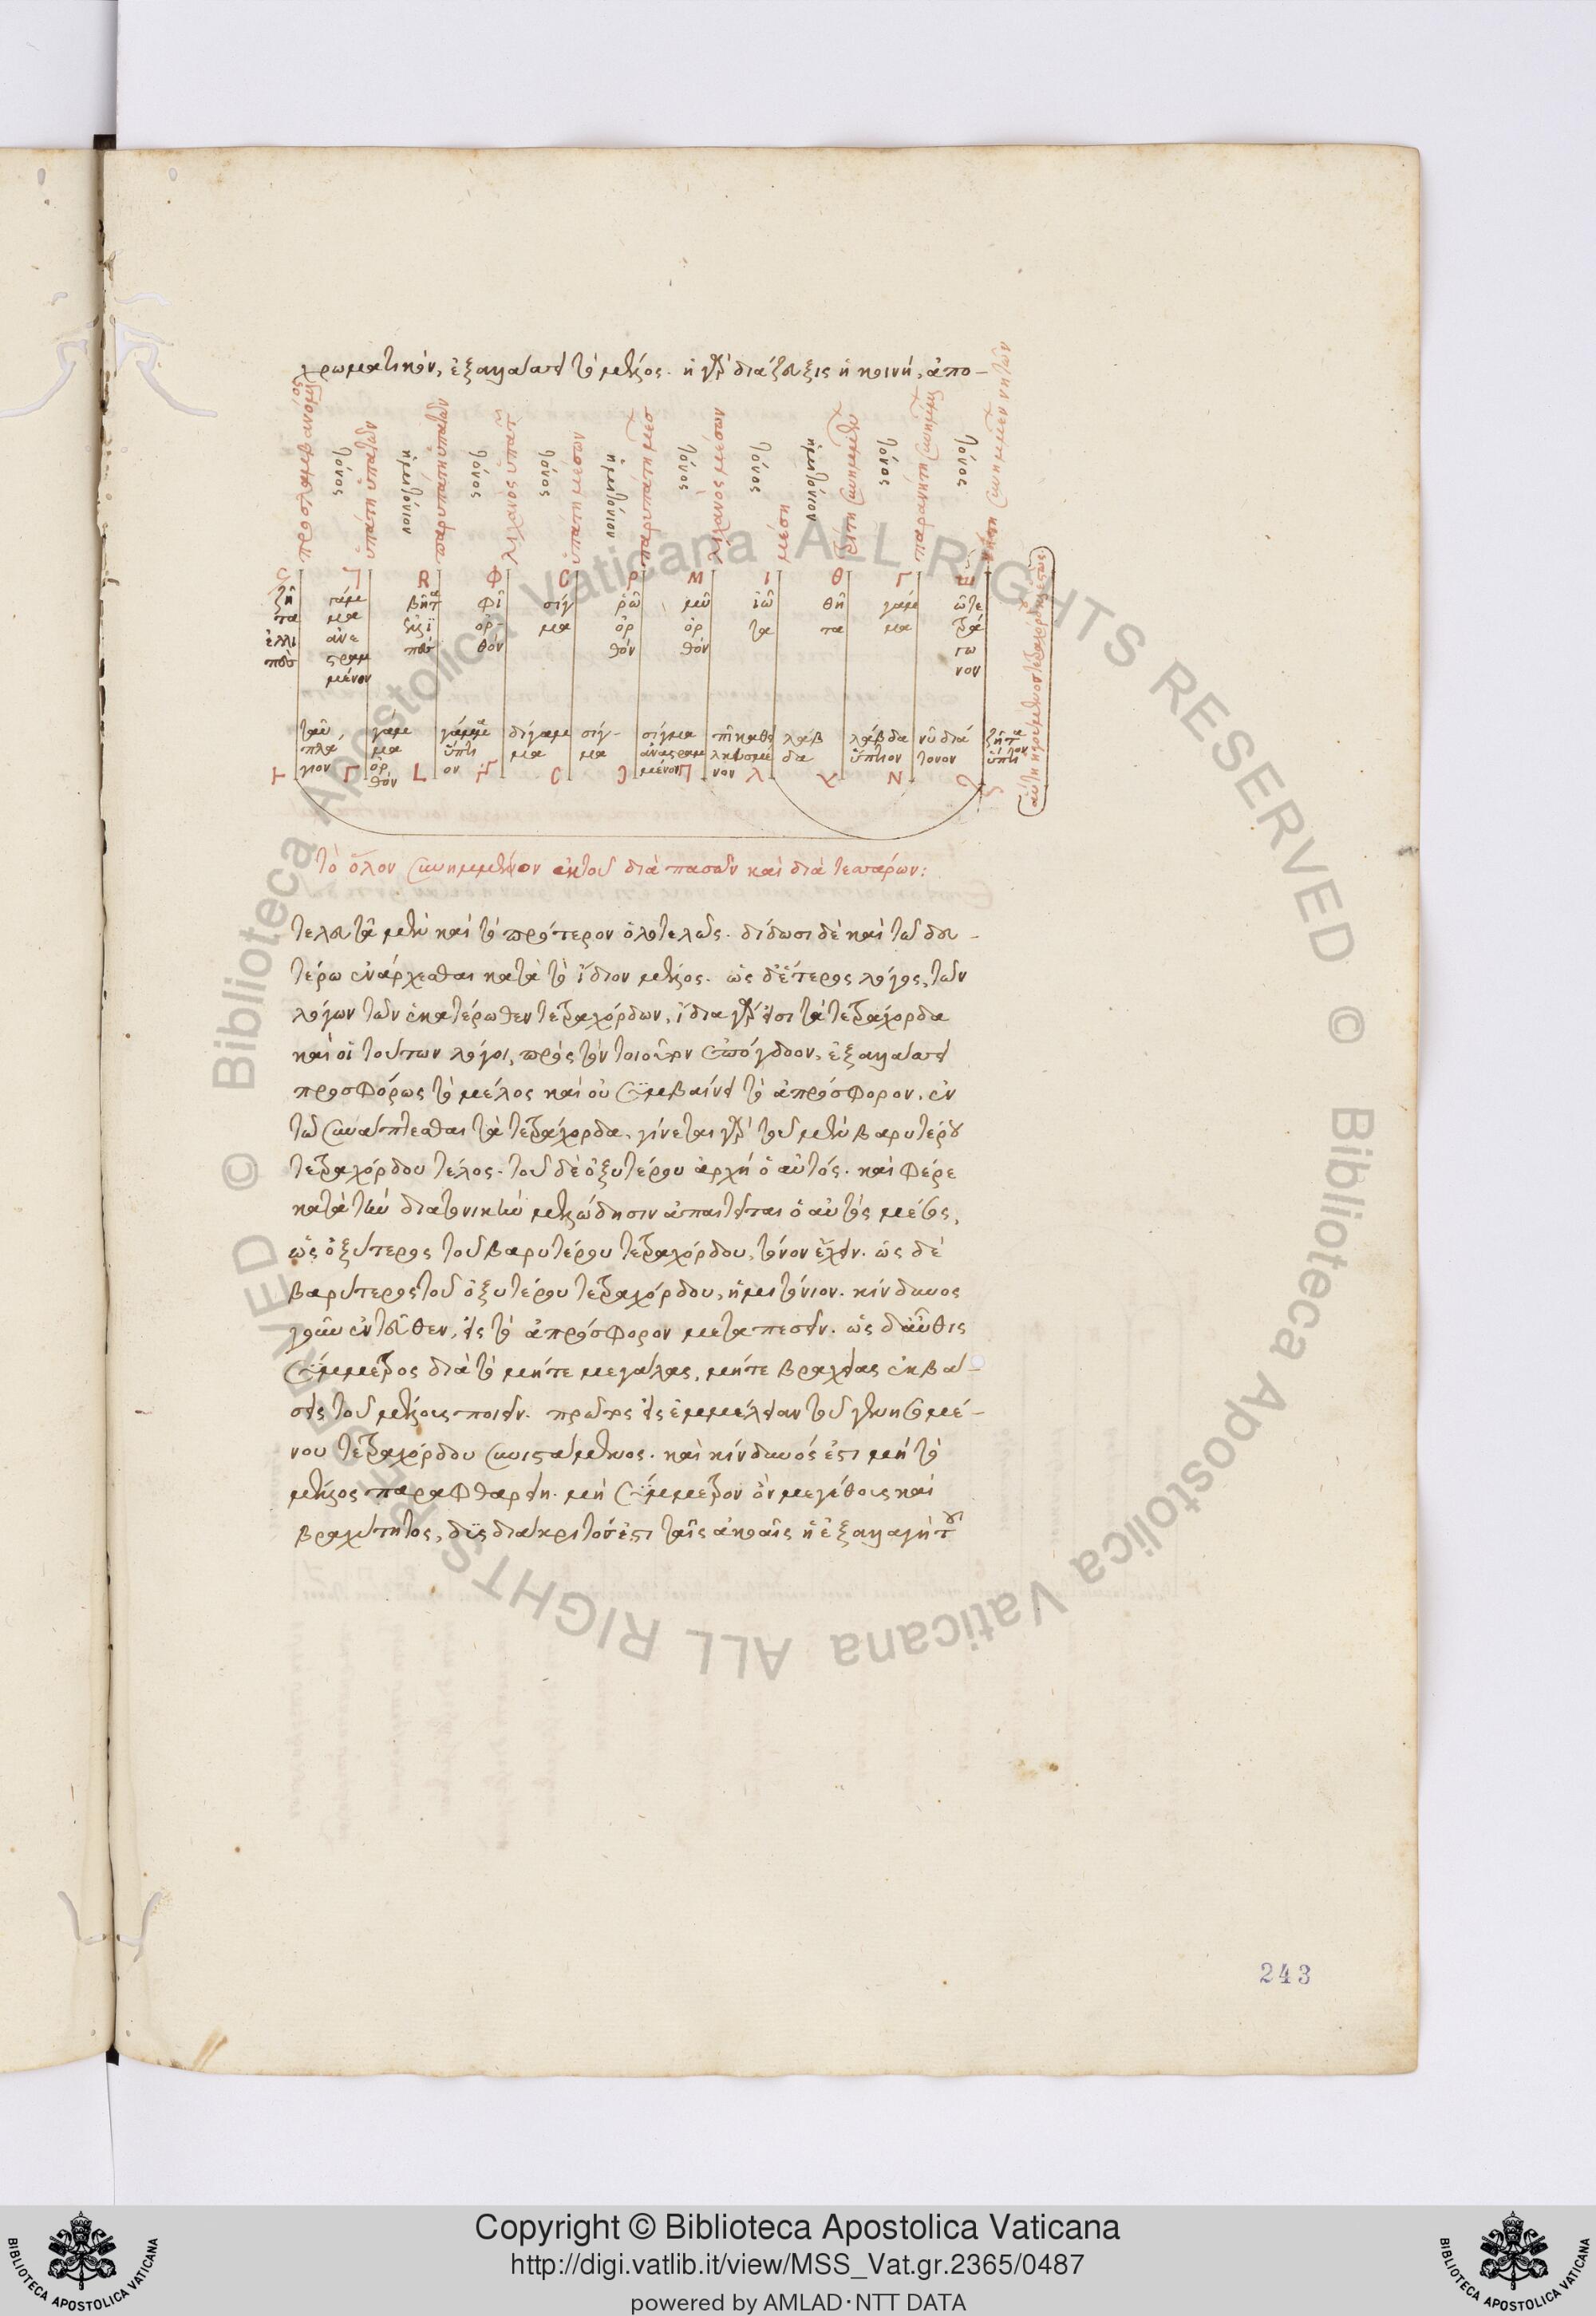 χρωματικὸν, ἐξαλλάττει τὸ μέλος. ἡ γὰρ διάζευξις ἡ κοινὴ, ἀπο-
προσλαμβανόμενος
τόνος
ὑπάτη ὑπάτων
ἡμιτόνιον
παρυπάτη ὑπάτων
τόνος
λιχανὸς ὑπάτων
τόνος
ὑπάτη μέσων
ἡμιτόνιον
παρυπάτη μέσων
τόνος
λιχανὸς μέσων
τόνος
μέση
ἡμιτόνιον
τρίτη συνημμένων
τόνος
παρανήτη συνημμένων
τόνος
R Φ C Ρ Μ Ι Θ Γ
ζῆτα ἐλλιπὲς
γάμμα ἀνεστραμμένον
βῆτα ἐλλιπὲς
φῖ ὀρθόν
σίγμα
ῥῶ ὀρθόν
μῦ ὀρθόν
ἰῶτα
θῆτα
γάμμα
ὦ τετράγωνον
ταῦ πλάγιον
γάμμα ὀρθόν
γάμμα ὕπτιον
δίγαμμα
σίγμα
σίγμα ἀνεστραμμένον
πῖ καθειλκυσμένον
λάβδα
λάβδα ὕπτιον
νῦ διάτονον
ζῆτα ὕπτιον
Γ L C Ͻ Π λ Ν
τὸ ὅλον συνημμένον ἐκ τοῦ διὰ πασῶν καὶ διὰ τεσσάρων:
τελευτᾶ μὲν καὶ τὸ πρότερον ὁλοτελῶς. δίδωσι δὲ καὶ τῷ δευ-
τέρω ἐνάρχεσθαι κατὰ τὸ ἴδιον μέλος. ὡς δ' ἕτερος λόγος, τῶν
λόγων τῶν ἑκατέρωθεν τετραχόρδων, ἴδια γάρ εἰσι τὰ τετράχορδα
καὶ οἱ τούτων λόγοι, πρὸς τὸν τοιοῦτον ἐπόγδοον, ἐξαλλάττει
προσφόρως τὸ μέλος καὶ οὐ συμβαίνει τὸ ἀπρόσφορον. ἐν
τῷ συνάπτεσθαι τὰ τετράχορδα, γίνεται γὰρ τοῦ μὲν βαρυτέρου
τετραχόρδου τέλος. τοῦ δὲ ὀξυτέρου ἀρχή ὁ αὐτός. καὶ φέρε
κατὰ τὴν διατονικὴν μελώδησιν ἀπαιτεῖται ὁ αὐτὸς μέσος,
ὡς ὀξύτερος τοῦ βαρυτέρου τετραχόρδου, τόνον ἔχειν. ὡς δὲ
βαρύτερος τοῦ ὀξυτέρου τετραχόρδου, ἡμιτόνιον. κίνδυνος
γοῦν ἐντεῦθεν, εἰς τὸ ἀπρόσφορον μεταπεσεῖν. ὡς δ' αὖθις
σύμμετρος διὰ τὸ μήτε μεγάλας, μήτε βραχείας ἐκβά-
σεις τοῦ μέλους ποιεῖν. πρῶτος εἰς ἐμμέλειαν τοῦ γενησομέ-
νου τετραχόρδου συνιστάμενος. καὶ κίνδυνός ἐστι μὴ τὸ
μέλος παραφθαρείη. μὴ σύμμετρον ὂν μεγέθους καὶ
βραχύτητος, δυσδιάκριτον ἐστι ταῖς ἀκοαῖς ἡ ἐξαλλαγὴ τοῦ
243
Copyright © Biblioteca Apostolica Vaticana
http://digi.vatlib.it/view/MSS_Vat.gr.2365/0487
powered by AMLAD·NTT DATA
BIBLIOTECA APOSTOLICA VATICANA
BIBLIOTECA APOSTOLICA VATICANA
© Biblioteca Apostolica Vaticana ALL RIGHTS RESERVED
© Biblioteca Apostolica Vaticana ALL RIGHTS RESERVED